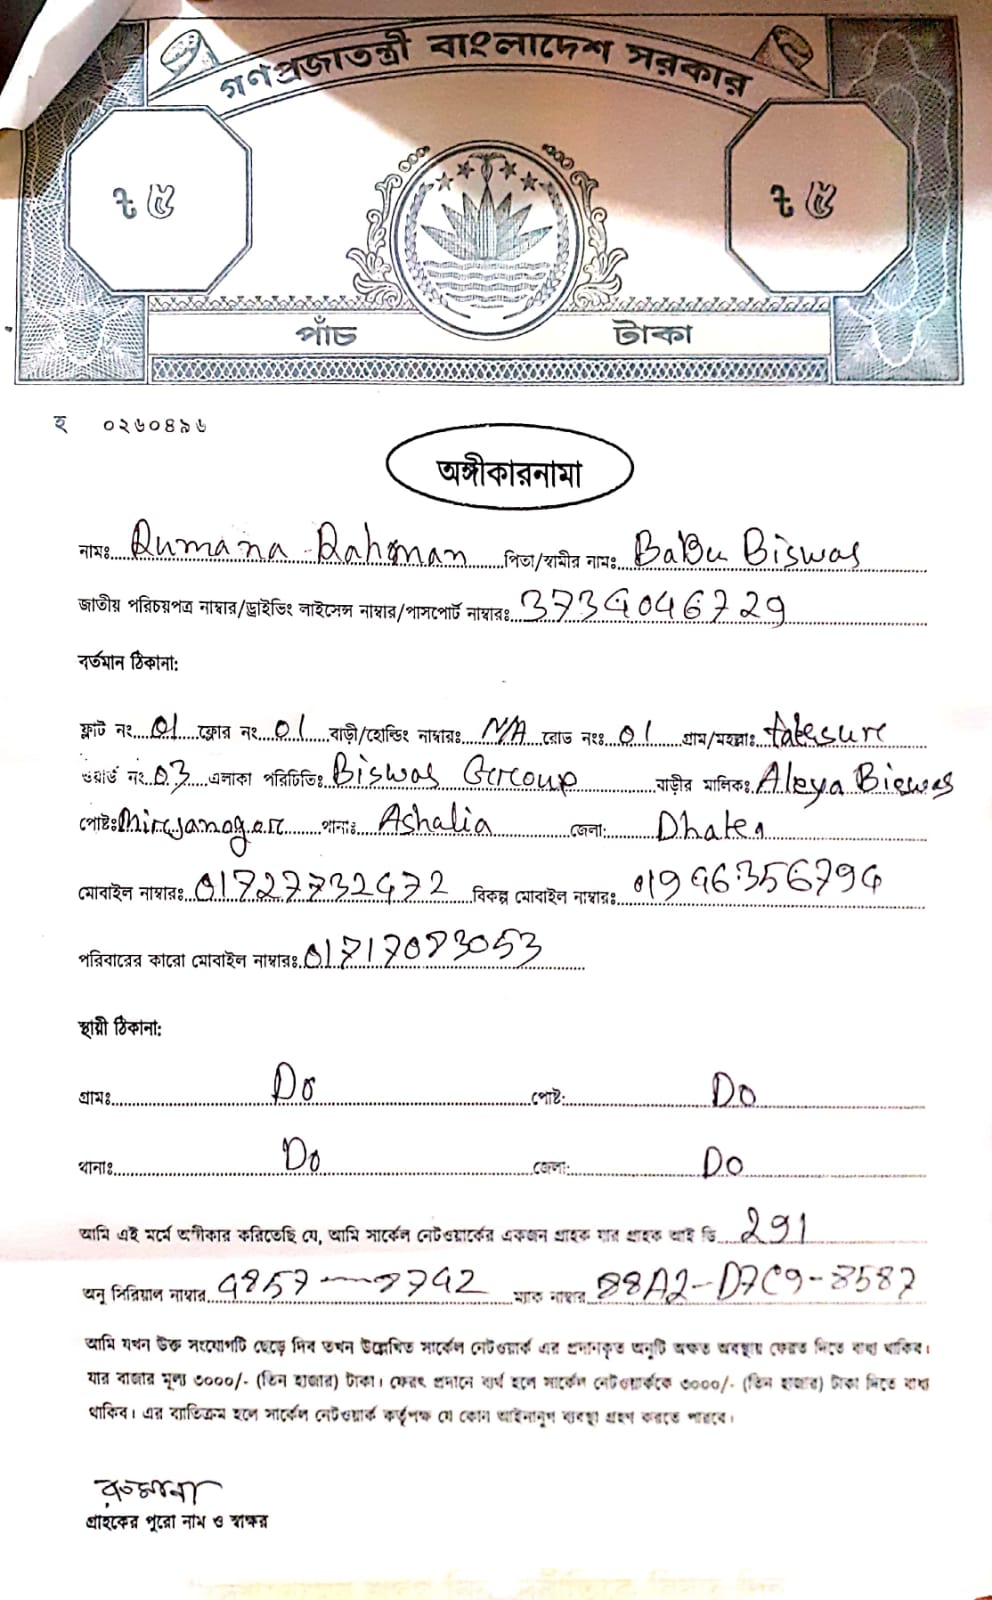 গণপ্রজাতন্ত্রী বাংলাদেশ সরকার
ট ৫ ট ৫
পাঁচ টাকা
হ ০২৬০৪৯৬
অঙ্গীকারনামা
নামঃ Rumana Rahman পিতা/স্বামীর নামঃ BaBu Biswas
জাতীয় পরিচয়পত্র নাম্বার/ড্রাইভিং লাইসেন্স নাম্বার/পাসপোর্ট নাম্বারঃ 3734046729
বর্তমান ঠিকানা:
ফ্লাট নং 01 ফ্লোর নং 01 বাড়ী/হোল্ডিং নাম্বারঃ N/A রোড নংঃ 01 গ্রাম/মহল্লাঃ
ওয়ার্ড নং 03 এলাকা পরিচিতিঃ Biswas Group বাড়ীর মালিকঃ Aleya Biswas
পোষ্টঃ Mirzanagar থানাঃ Ashalia জেলা: Dhaka
মোবাইল নাম্বারঃ 01727732472 বিকল্প মোবাইল নাম্বারঃ 01946356794
পরিবারের কারো মোবাইল নাম্বারঃ 01717083053
স্থায়ী ঠিকানা:
গ্রামঃ Do পোষ্ট: Do
থানাঃ Do জেলা: Do
আমি এই মর্মে অঙ্গীকার করিতেছি যে, আমি সার্কেল নেটওয়ার্কের একজন গ্রাহক যার গ্রাহক আই ডি 291
অনু সিরিয়াল নাম্বার 4857 8742 ম্যাক নাম্বার 88A2-D7C9-8587
আমি যখন উক্ত সংযোগটি ছেড়ে দিব তখন উল্লেখিত সার্কেল নেটওয়ার্ক এর প্রদানকৃত অনুটি অক্ষত অবস্থায় ফেরত দিতে বাধ্য থাকিব।
যার বাজার মূল্য ৩০০০/- (তিন হাজার) টাকা। ফেরৎ প্রদানে ব্যর্থ হলে সার্কেল নেটওয়ার্ককে ৩০০০/- (তিন হাজার) টাকা দিতে বাধ্য
থাকিব। এর ব্যতিক্রম হলে সার্কেল নেটওয়ার্ক কর্তৃপক্ষ যে কোন আইনানুগ ব্যবস্থা গ্রহণ করতে পারবে।
রুমানা
গ্রাহকের পুরো নাম ও স্বাক্ষর